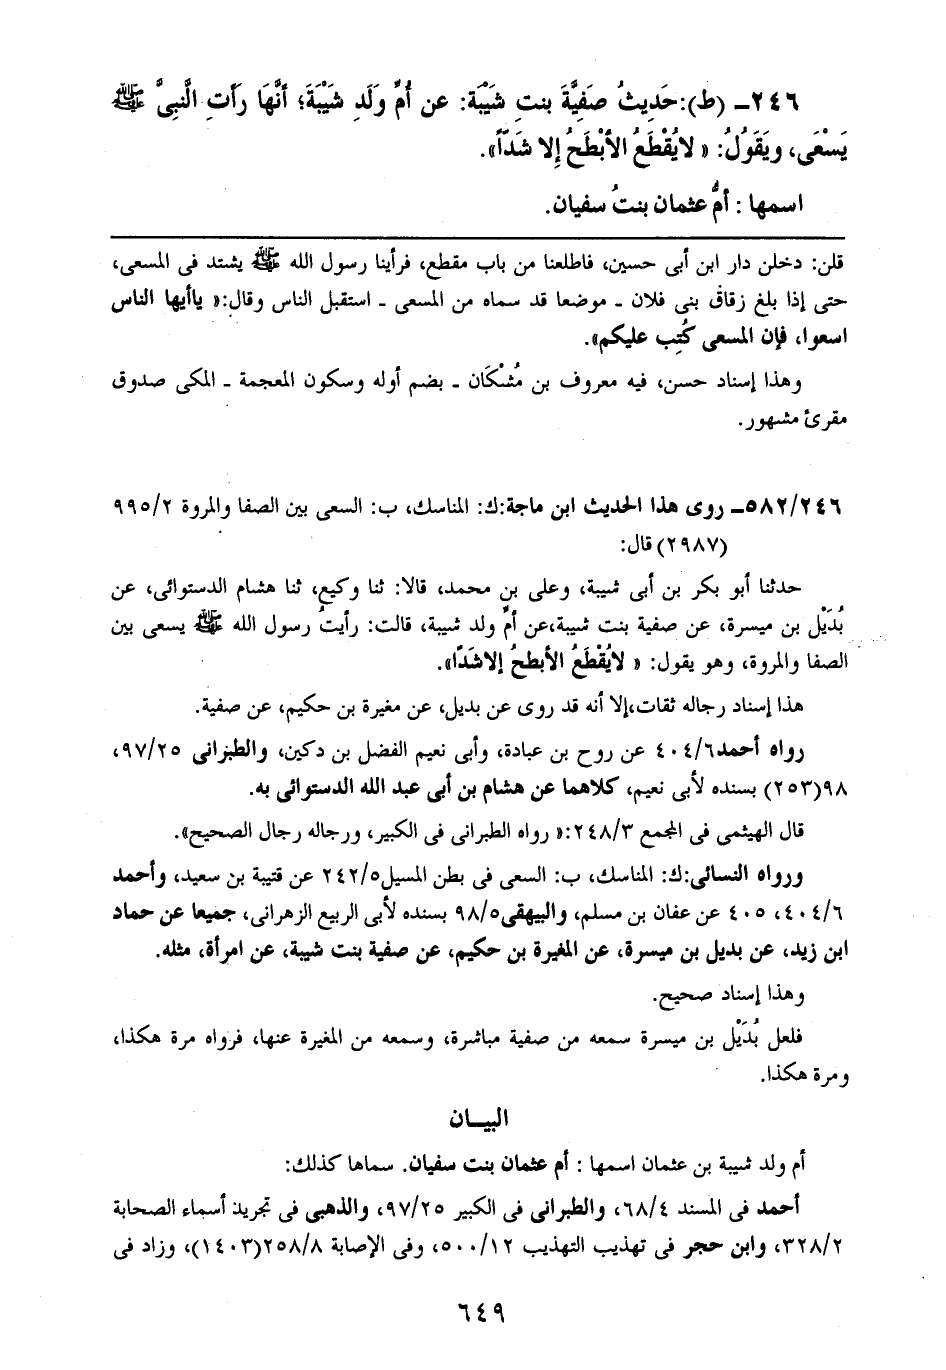 ٢٤٦ــ (ط): حَدِيثُ صَفِيَّةَ بنتِ شَيْبَة: عن أُمِّ وَلَدِ شَيْبَةَ؛ أنَّهَا رَأتِ الَّنبِىَّ ﷺ
يَسْعَى، ويَقَولُ: « لايُقْطَعُ الأبْطَحُ إِلا شَدّاً».
اسمها : أمُّ عثمان بنتُ سفيان.
قلن: دخلن دار ابن أبى حسين، فاطلعنا من باب مقطع، فرأينا رسول الله ﷺ يشتد فى المسعى،
حتى إذا بلغ زقاق بنى فلان ـ موضعا قد سماه من المسعى ـ استقبل الناس وقال:« ياأيها الناس
اسعوا، فإن المسعى كُتِب عليكم».
وهذا إسناد حسن، فيه معروف بن مُشْكَان ـ بضم أوله وسكون المعجمة ـ المكى صدوق
مقرئ مشهور.
٥٨٢/٢٤٦ــ روى هذا الحديث ابن ماجة:ك: المناسك، ب: السعى بين الصفا والمروة ٩٩٥/٢
(٢٩٨٧) قال:
حدثنا أبو بكر بن أبى شيبة، وعلى بن محمد، قالا: ثنا وكيع، ثنا هشام الدستوائى، عن
بُدَيْل بن ميسرة، عن صفية بنت شيبة،عن أمِّ ولد شيبة، قالت: رأيتُ رسول الله ﷺ يسعى بين
الصفا والمروة، وهو يقول: « لايُقْطَعُ الأبطحُ إلاشَدًا».
هذا إسناد رجاله ثقات،إلا أنه قد روى عن بديل، عن مغيرة بن حكيم، عن صفية.
رواه أحمد٤٠٤/٦ عن روح بن عبادة، وأبى نعيم الفضل بن دكين، والطبرانى ٩٧/٢٥،
٩٨(٢٥٣) بسنده لأبى نعيم، كلاهما عن هشام بن أبى عبد الله الدستوائى به.
قال الهيثمى فى المجمع ٢٤٨/٣:« رواه الطبرانى فى الكبير، ورجاله رجال الصحيح».
ورواه النسائى:ك: المناسك، ب: السعى فى بطن المسيل٢٤٢/٥ عن قتيبة بن سعيد، وأحمد
٤٠٤/٦، ٤٠٥ عن عفان بن مسلم، والبيهقى٩٨/٥ بسنده لأبى الربيع الزهرانى، جميعا عن حماد
ابن زيد، عن بديل بن ميسرة، عن المغيرة بن حكيم، عن صفية بنت شيبة، عن امرأة، مثله.
وهذا إسناد صحيح.
فلعل بُدَيْل بن ميسرة سمعه من صفية مباشرة، وسمعه من المغيرة عنها، فرواه مرة هكذا،
ومرة هكذا.
البيــان
أم ولد شيبة بن عثمان اسمها : أم عثمان بنت سفيان. سماها كذلك:
أحمد فى المسند ٦٨/٤، والطبرانى فى الكبير ٩٧/٢٥، والذهبى فى تجريد أسماء الصحابة
٣٢٨/٢، وابن حجر فى تهذيب التهذيب ٥٠٠/١٢، وفى الإصابة ٢٥٨/٨(١٤٠٣)، وزاد فى
٦٤٩